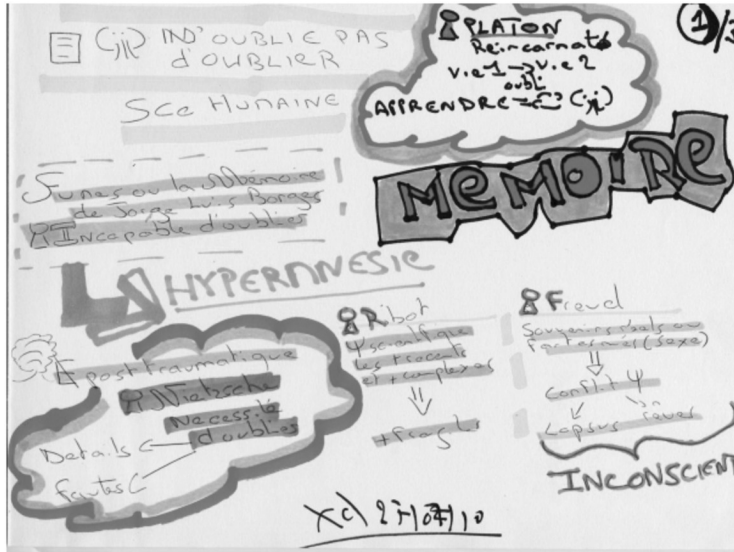 N'OUBLIE PAS
D'OUBLIER
SCe HUMAINE
PLATON
Réincarnat°
vie 1 → vie 2
oubli
APPRENDRE =
1/3
MEMOIRE
Funes ou la Mémoire
de Jorge Luis Borges
Incapable d'oublier
HYPERMNESIE
post traumatique
Nietzsche
Necessité
d'oublier
Details
fautes
Ribot
Ψ scientifique
les + récents
et + complexes
⇓
+ fragiles
Freud
Souvenirs réels ou
fantasmés (sexe)
⇓
Conflit Ψ
Lapsus rêves
INCONSCIENT
27/07/10